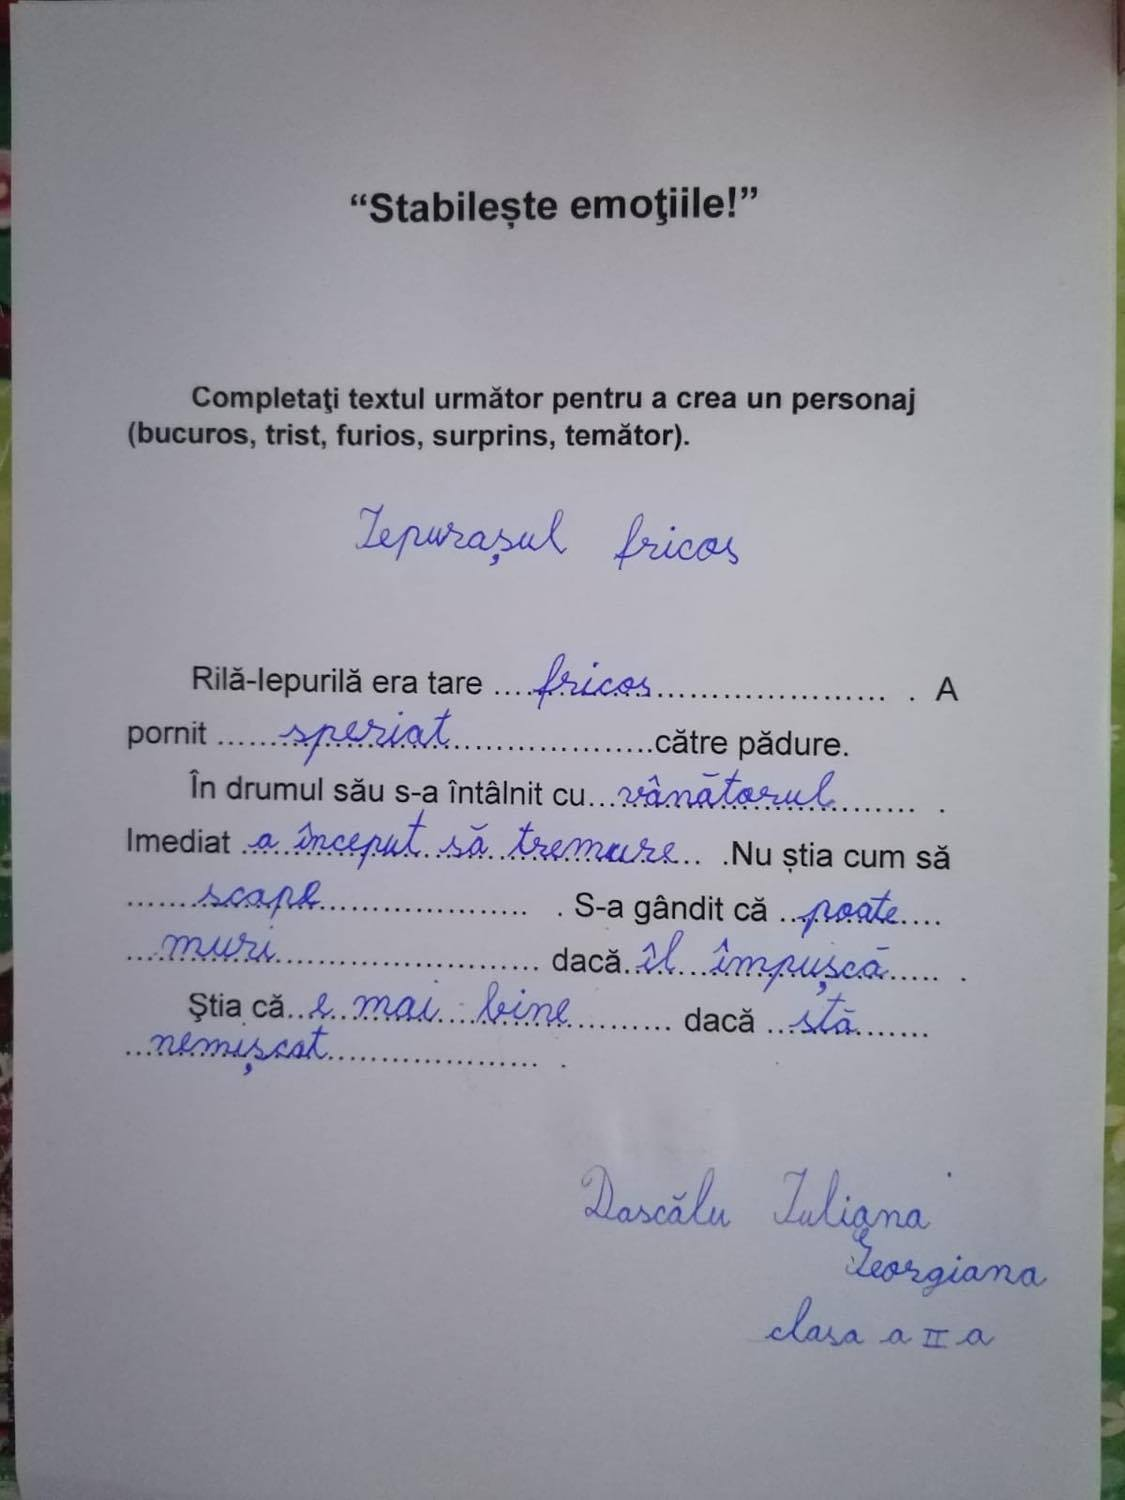 “Stabilește emoţiile!”
Completaţi textul următor pentru a crea un personaj
(bucuros, trist, furios, surprins, temător).
Iepurașul fricos
Rilă-Iepurilă era tare ....fricos....................... . A
pornit ......speriat....................către pădure.
În drumul său s-a întâlnit cu...vânătorul........ .
Imediat ..a început să tremure... .Nu știa cum să
.......scape..................... . S-a gândit că ..poate....
...muri.......................... dacă.îl împușcă..... .
Ştia că..e mai bine.......... dacă ...stă.......
...nemișcat..................... .
Dascălu Iuliana
Georgiana
clasa a II a